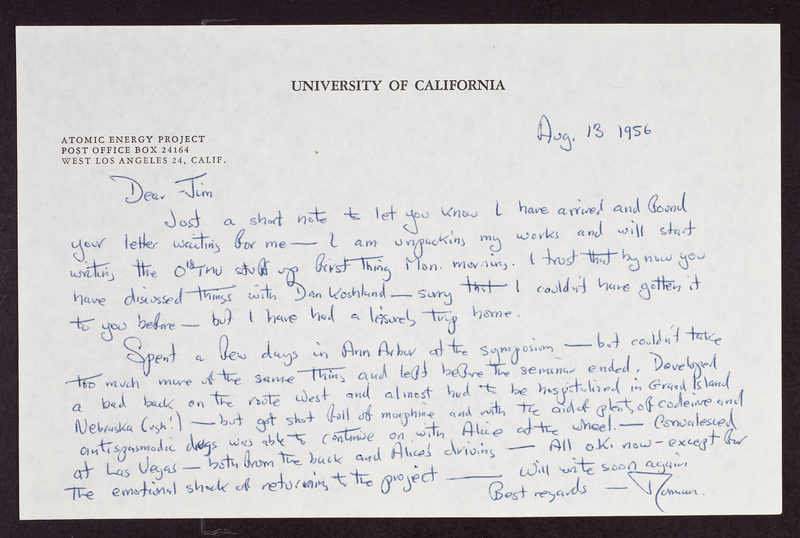 UNIVERSITY OF CALIFORNIA
Aug. 13 1956
ATOMIC ENERGY PROJECT
POST OFFICE BOX 24164
WEST LOS ANGELES 24, CALIF.
Dear Jim
Just a short note to let you know I have arrived and found
your letter waiting for me — I am unpacking my works and will start
writing the O18 TMV stuff up first thing Mon. morning. I trust that by now you
have discussed things with Dan Koshland — sorry that I couldn't have gotten it
to you before — but I have had a leisurely trip home.
Spent a few days in Ann Arbor at the symposium — but couldn't take
too much more of the same thing and left before the seminar ended. Developed
a bad back on the route west and almost had to be hospitalized in Grand Island
Nebraska (ugh!) — but got shot full of morphine and with the aid of plenty of codeine and
antispasmodic drugs was able to continue on with Alice at the wheel. — Convalesced
at Las Vegas — both from the back and Alice's driving — All o.k. now - except for
the emotional shock of returning to the project — will write soon again
Best regards — Norman.